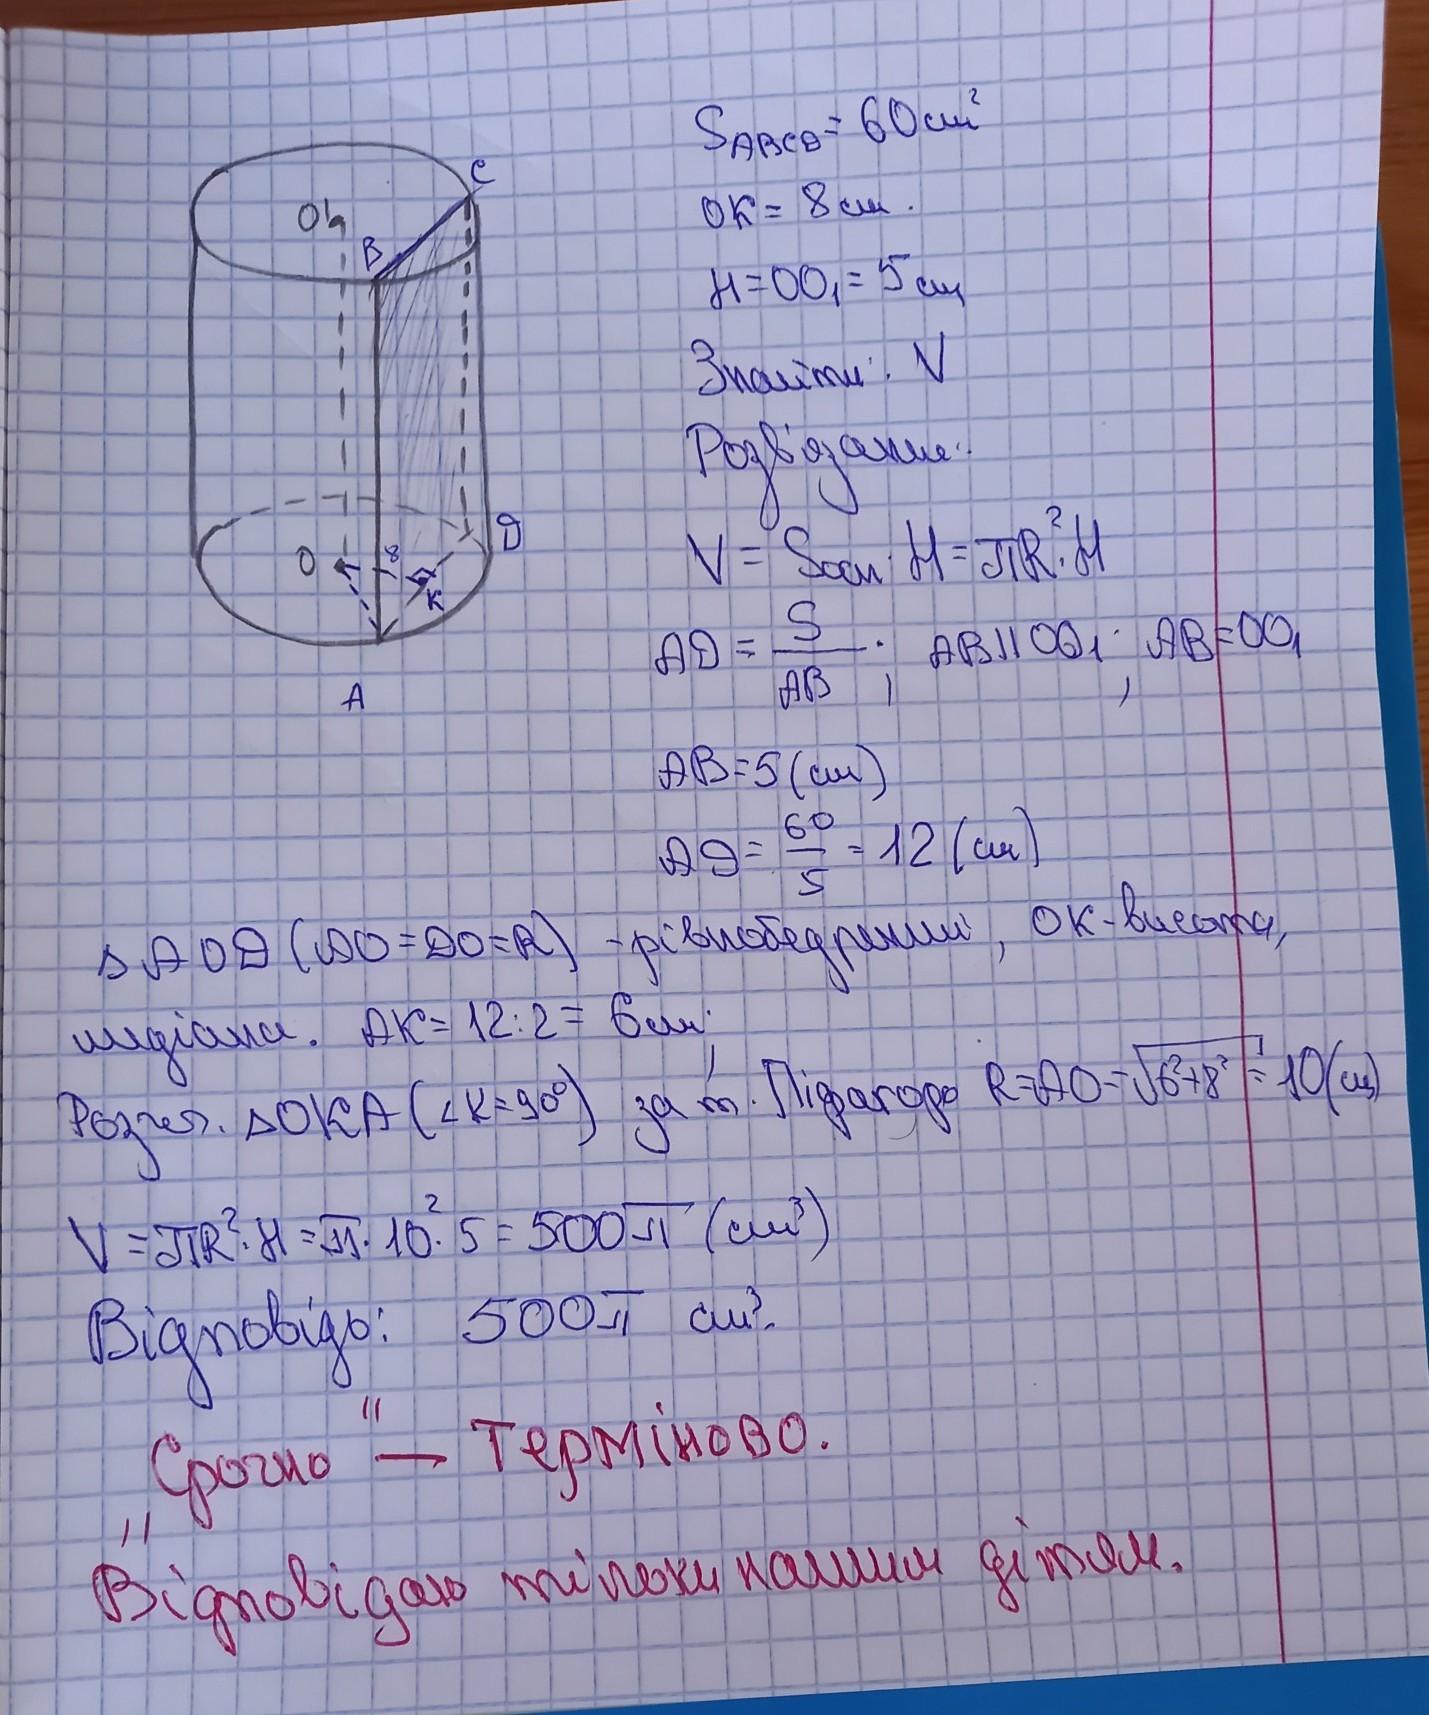 S ABCD = 60 см²
OK = 8 см.
H = OO₁ = 5 см
Знайти: V
Розв'язание:
V = Sосн · H = πR² · H
AD = S/AB ; AB || OO₁ ; AB = OO₁
AB = 5 (см)
AD = 60/5 = 12 (см)
Δ AOD (AO = DO = R) - рівнобедрений, OK - висота,
медіана. AK = 12 : 2 = 6 см;
Розгл. Δ OKA (∠K = 90°) за т. Піфагора R = AO = √6²+8² = 10 (см)
V = πR² · H = π · 10² · 5 = 500π (см³)
Відповідь: 500π см³.
„Срочно" — Терміново.
Відповідаю тільки нашим дітям.
O₁
C
B
O
8
K
D
A